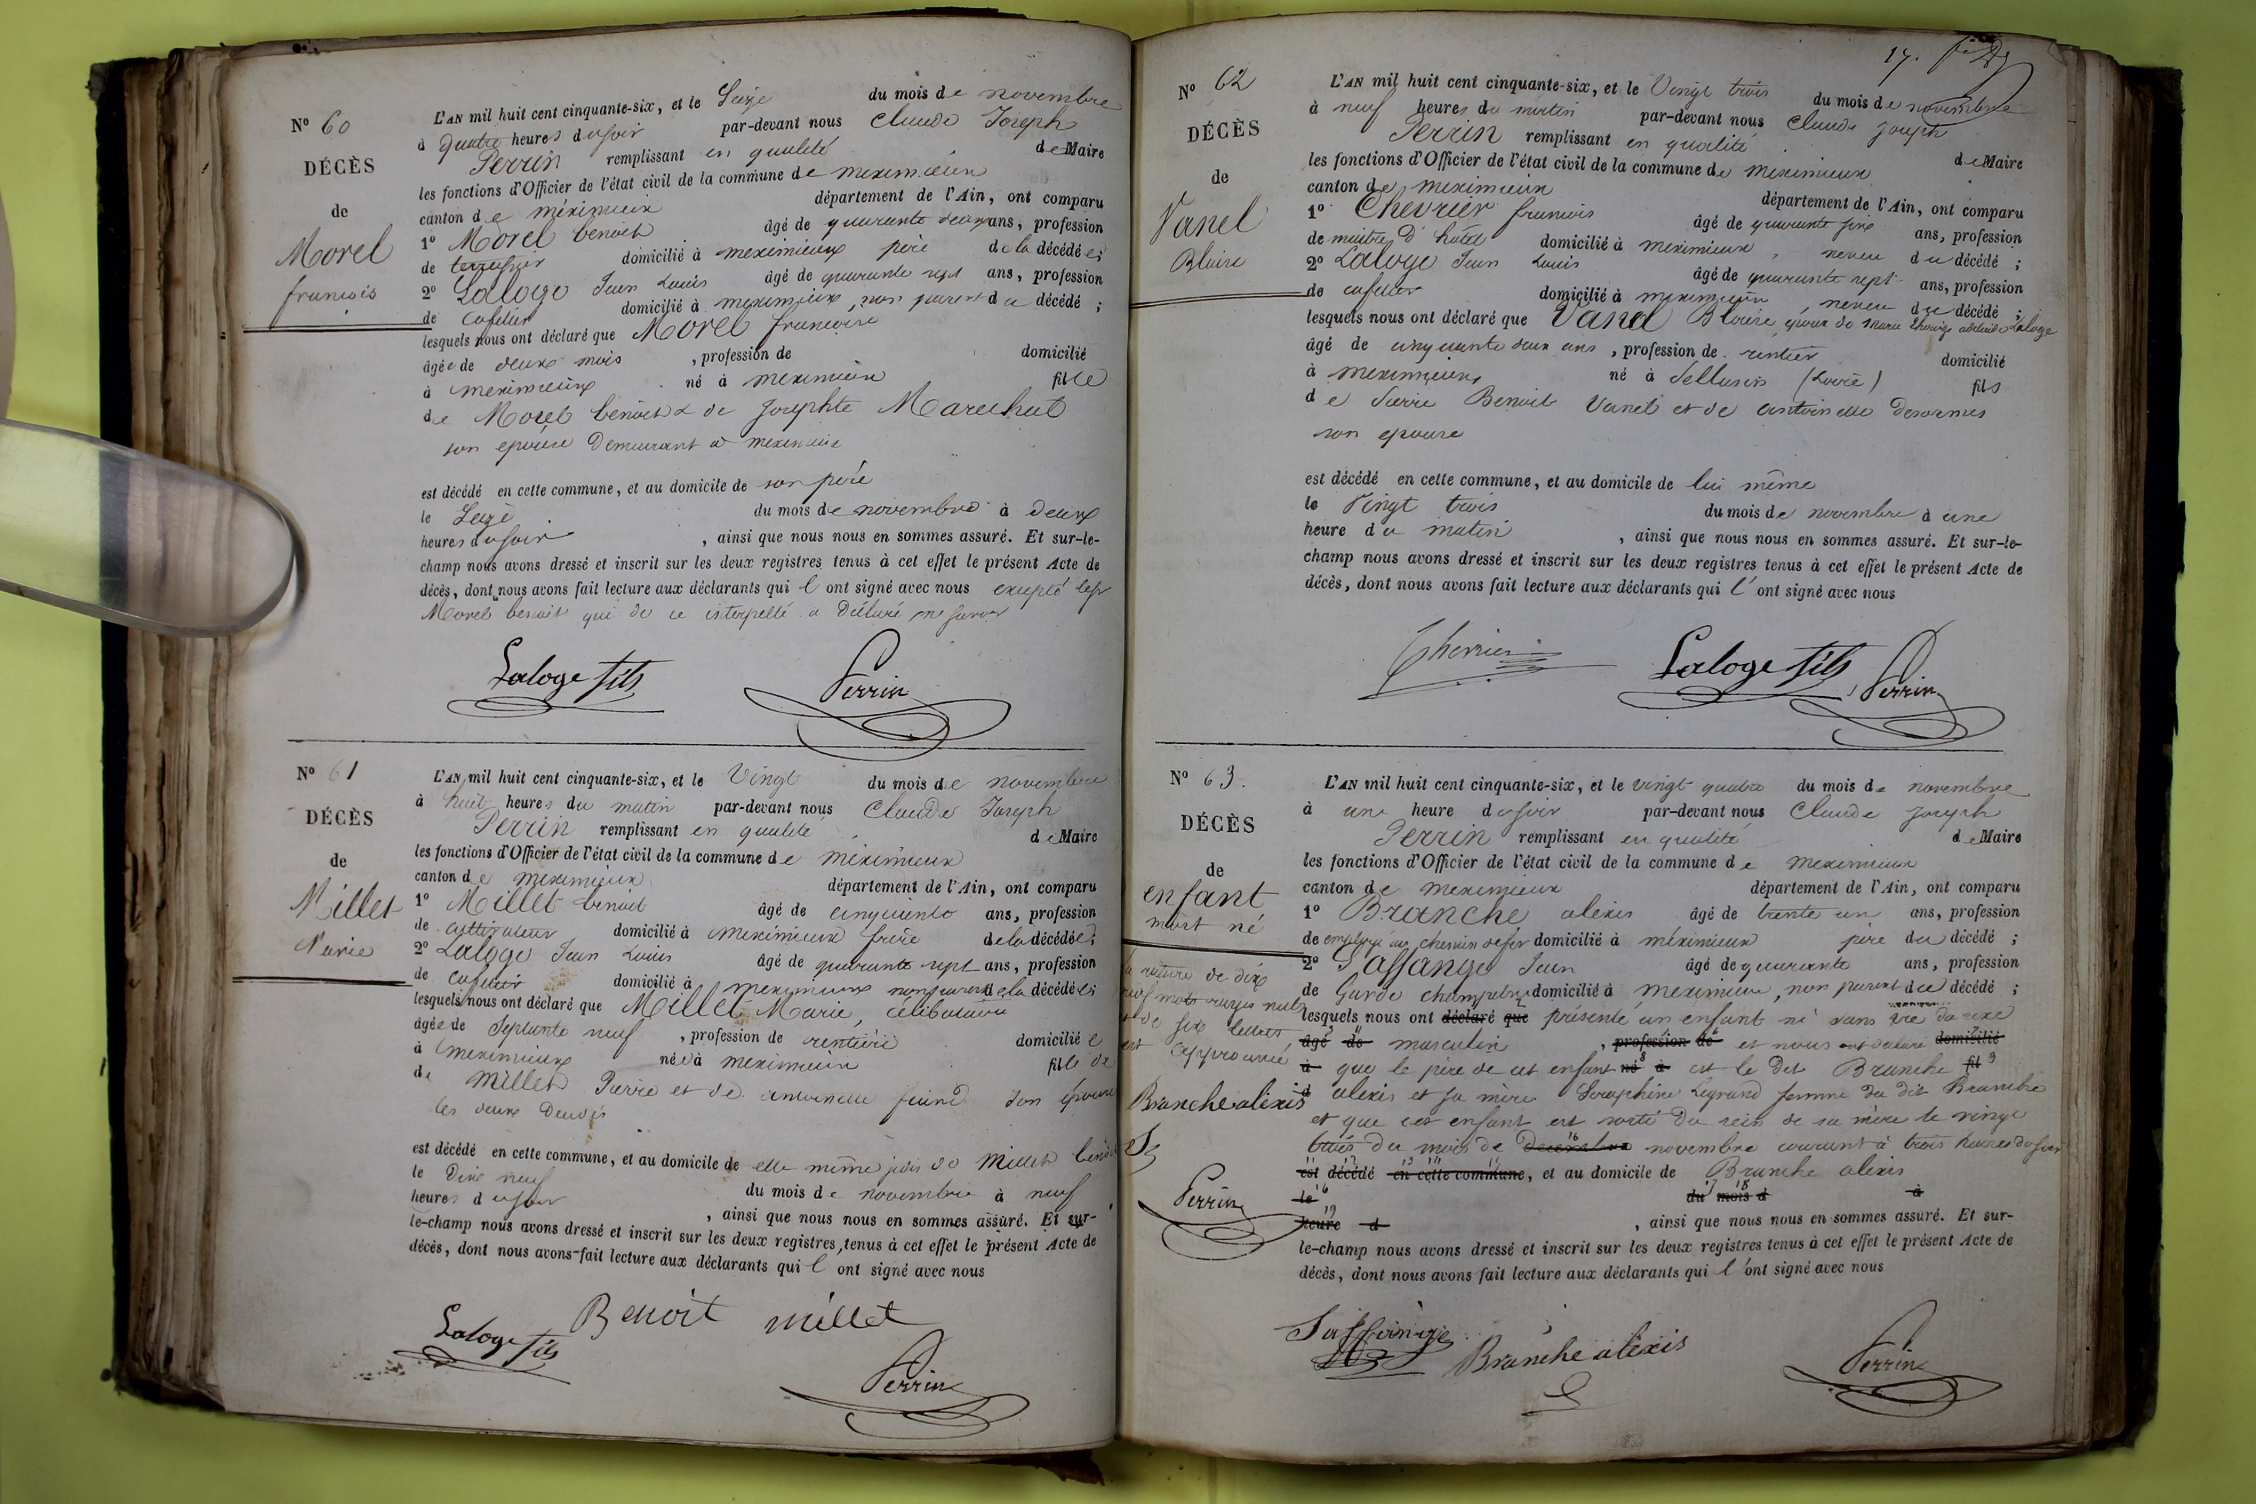 N° 60
DÉCÈS
de
Morel
francois
L'AN mil huit cent cinquante-six, et le Seize du mois de novembre
à quatre heures du soir par-devant nous Claude Joseph
Perrin remplissant en qualité de Maire
les fonctions d'Officier de l'état civil de la commune de meximieux
canton de méximieux département de l'Ain, ont comparu
1° Morel benoit âgé de quarante deux ans, profession
de domicilié à meximieux père de la décédée;
2° Laloge Jean Louis âgé de quarante sept ans, profession
de Cafetier domicilié à meximieux, non parent du décédé;
lesquels nous ont déclaré que Morel francoise
âgée de deux mois, profession de domicilié
à meximieux né à meximieux fille
de Morel benoit & de Josephte Marechal
son epouse demeurant a meximieux
est décédé en cette commune, et au domicile de son père
le Seize du mois de novembre à deux
heures du soir, ainsi que nous nous en sommes assuré. Et sur-le-
champ nous avons dressé et inscrit sur les deux registres tenus à cet effet le présent Acte de
décès, dont nous avons fait lecture aux déclarants qui l'ont signé avec nous excepté le sr
Morel benoit qui de ce interpellé a déclaré ne savoir
Laloge fils Perrin
N° 61
DÉCÈS
de
Millet
Marie
L'AN mil huit cent cinquante-six, et le Vingt du mois de novembre
à huit heures du matin par-devant nous Claude Joseph
Perrin remplissant en qualité de Maire
les fonctions d'Officier de l'état civil de la commune de méximieux
canton de meximieux département de l'Ain, ont comparu
1° Millet benoit âgé de cinquante ans, profession
de cultivateur domicilié à meximieux frère de la décédée;
2° Laloge Jean Louis âgé de quarante sept ans, profession
de Cafetier domicilié à meximieux non parent de la décédée;
lesquels nous ont déclaré que Millet Marie, célibataire
âgée de Septante neuf, profession de rentière domiciliée
à meximieux née à meximieux fille de
de Millet Pierre et de antoinette son épouse
les deux
est décédé en cette commune, et au domicile de elle même Millet benoit
le Dix neuf du mois de novembre à neuf
heures du soir, ainsi que nous nous en sommes assuré. Et sur-
le-champ nous avons dressé et inscrit sur les deux registres tenus à cet effet le présent Acte de
décès, dont nous avons fait lecture aux déclarants qui l'ont signé avec nous
Laloge fils Benoit millet
Perrin
17.
N° 62
DÉCÈS
de
Vanel
Blaise
L'AN mil huit cent cinquante-six, et le Vingt trois du mois de novembre
à neuf heures du matin par-devant nous Claude Joseph
Perrin remplissant en qualité de Maire
les fonctions d'Officier de l'état civil de la commune de meximieux
canton de meximieux département de l'Ain, ont comparu
1° Chevrier francois âgé de quarante six ans, profession
de maitre d'hotel domicilié à meximieux, neveu du décédé;
2° Laloge Jean Louis âgé de quarante sept ans, profession
de cafetier domicilié à meximieux, neveu du décédé;
lesquels nous ont déclaré que Vanel Blaise, époux de Marie Laloge
âgé de cinquante deux ans, profession de rentier domicilié
à meximieux né à (Loire) fils
de Pierre Benoit Vanel et de antoinette
son epouse
est décédé en cette commune, et au domicile de lui même
le Vingt trois du mois de novembre à une
heure du matin, ainsi que nous nous en sommes assuré. Et sur-le-
champ nous avons dressé et inscrit sur les deux registres tenus à cet effet le présent Acte de
décès, dont nous avons fait lecture aux déclarants qui l'ont signé avec nous
Chevrier Laloge fils Perrin
N° 63.
DÉCÈS
de
enfant
mort né
la rature de dix
neuf mots rayés nuls
et de six lettres
est approuvé
Branche alexis
Perrin
L'AN mil huit cent cinquante-six, et le vingt quatre du mois de novembre
à une heure du soir par-devant nous Claude Joseph
Perrin remplissant en qualité de Maire
les fonctions d'Officier de l'état civil de la commune de meximieux
canton de meximieux département de l'Ain, ont comparu
1° Branche alexis âgé de trente un ans, profession
de employé au chemin de fer domicilié à méximieux père du décédé;
2° Saffange Jean âgé de quarante ans, profession
de Garde champetre domicilié à meximieux, non parent du décédé;
lesquels nous ont déclaré que présenté un enfant né sans vie du sexe
âgé de masculin, profession de et nous ont déclaré domicilié
à que le père de cet enfant né à est le dit Branche fil
d alexis et sa mère Seraphine Legrand femme du dit Branche
et que cet enfant est sorti du sein de sa mère le vingt
trois du mois de decembre novembre courant à trois heures du soir
est décédé en cette commune, et au domicile de Branche alexis
le du mois d à
heure d, ainsi que nous nous en sommes assuré. Et sur-
le-champ nous avons dressé et inscrit sur les deux registres tenus à cet effet le présent Acte de
décès, dont nous avons fait lecture aux déclarants qui l'ont signé avec nous
Saffange Branche alexis Perrin